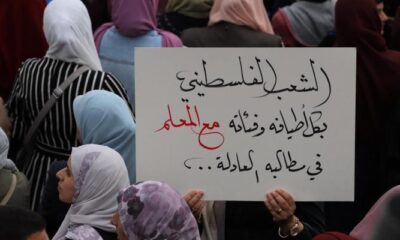 الشعب الفلسطيني
بكل أطيافه وفئاته مع المعلم
في مطالبه العادلة...